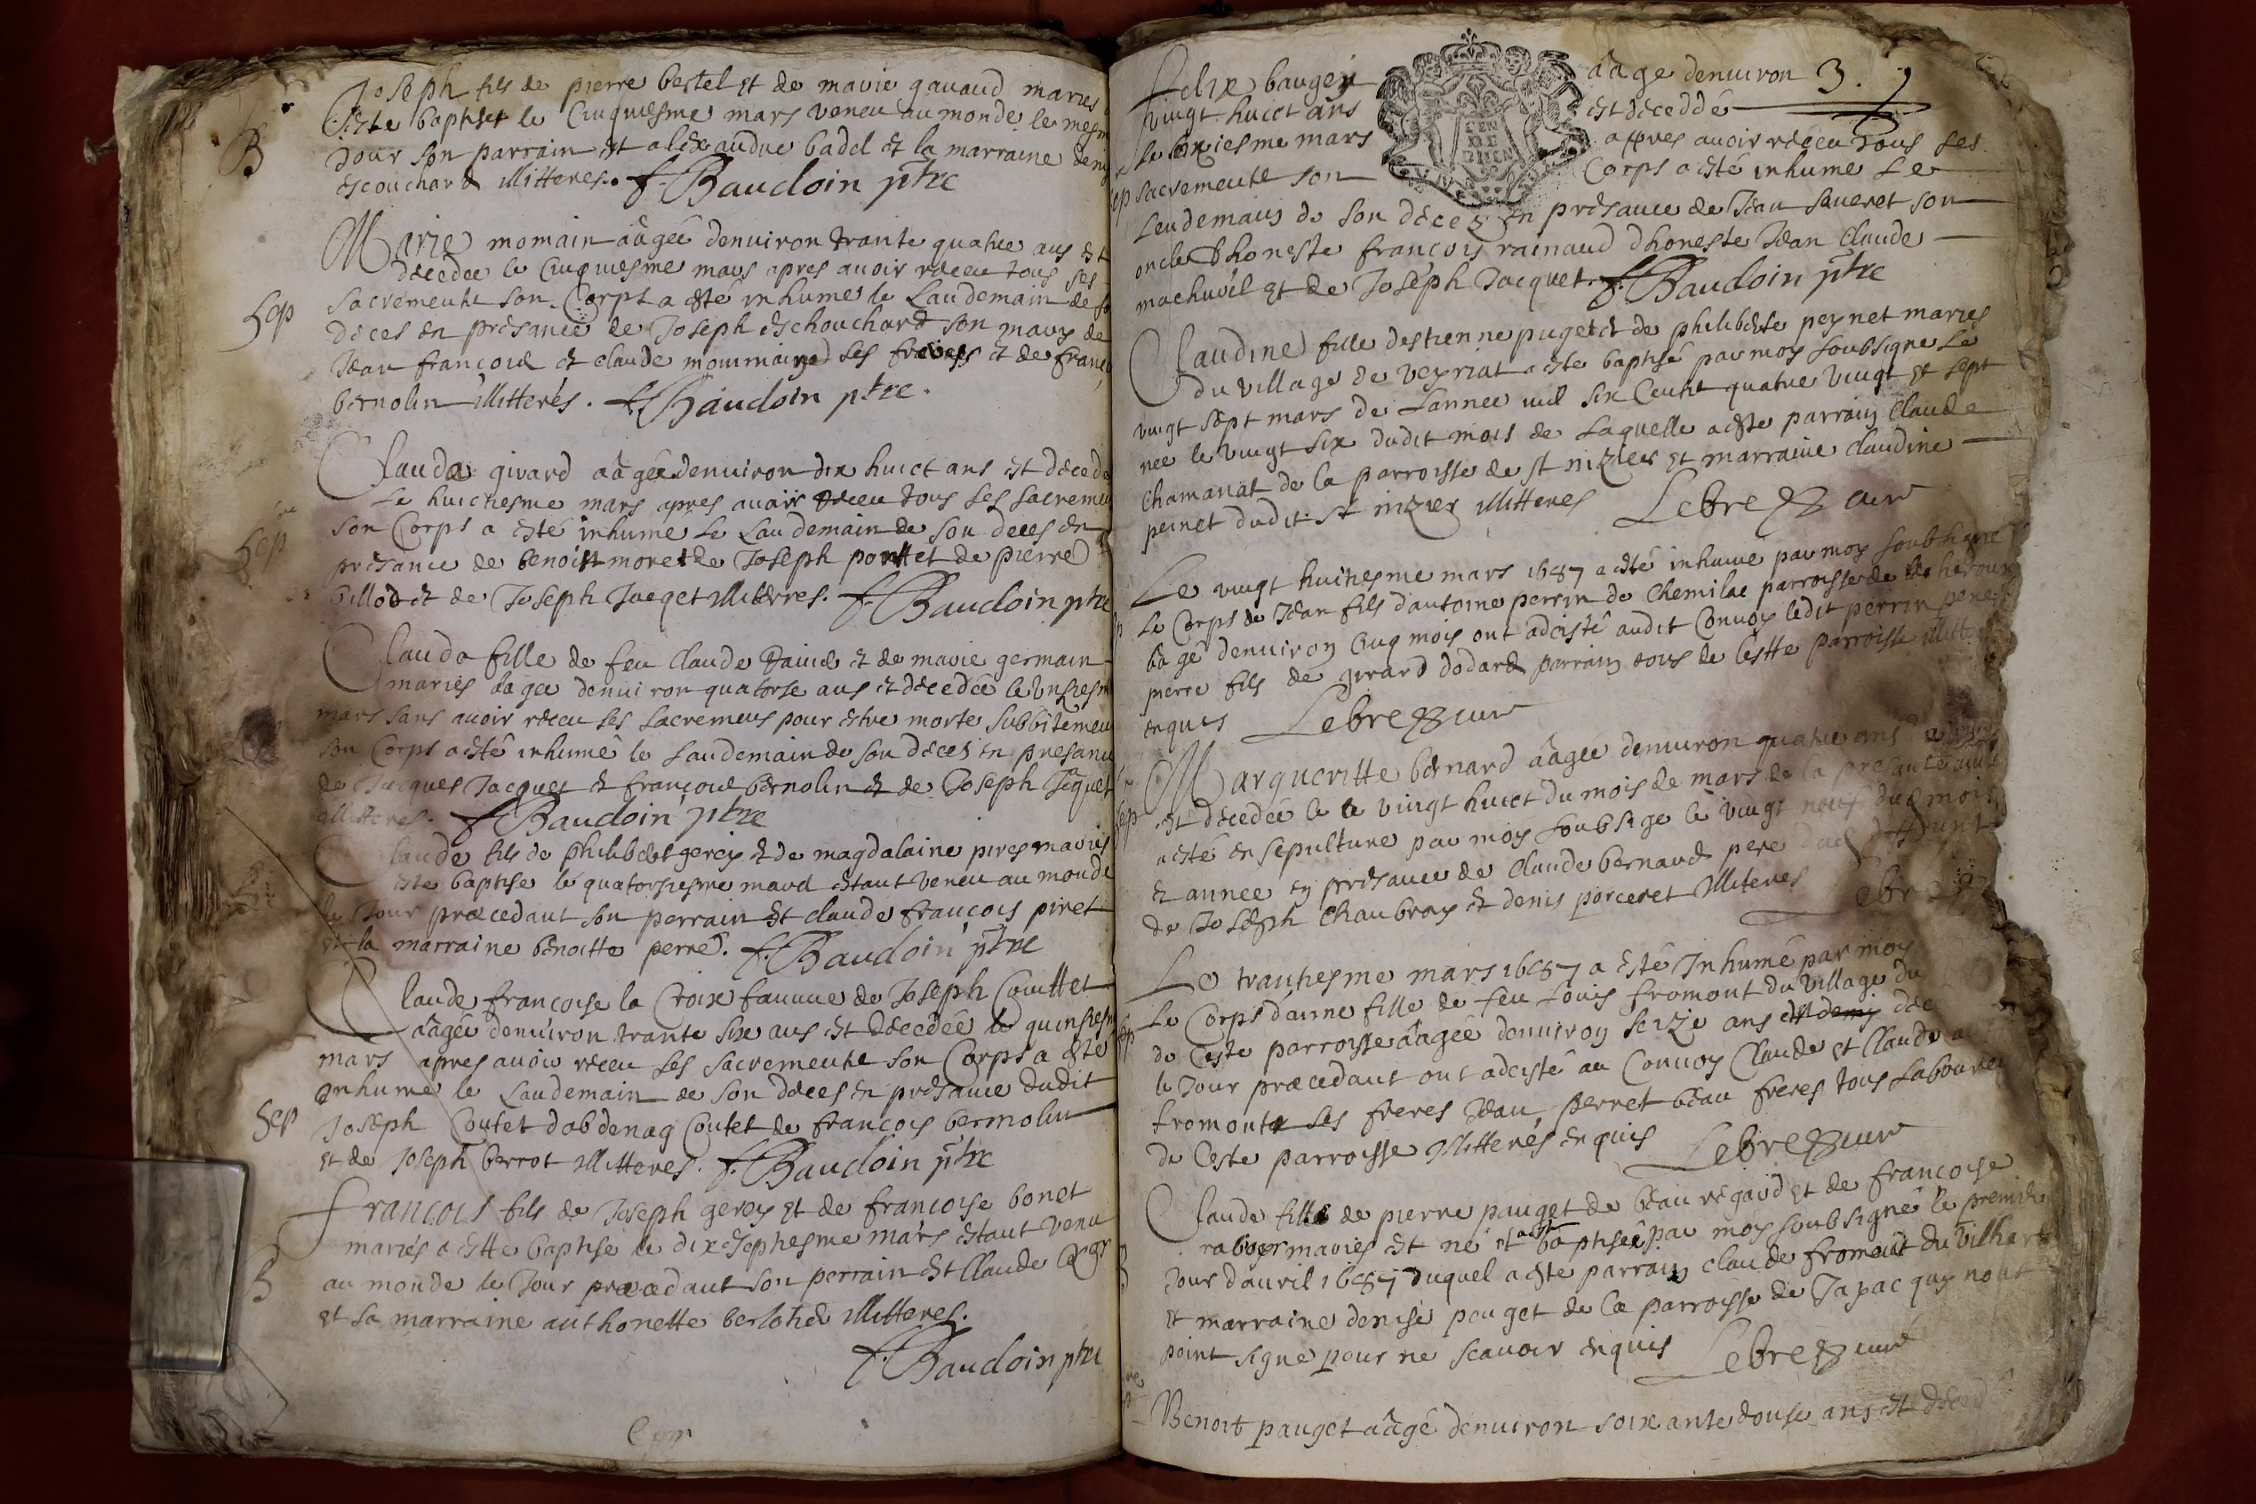 B
Joseph fils de pierre bestel et de marie gavaud maries
este baptiset le Cinquiesme mars veneu au monde le mesm
Jour son parrain est alexandre badel et la marraine deny
escouchard illitteres. f. Baudoin ptre
Sep
Marie momain aagée denviron trante quatre ans est
décedée le Cinquiesme mars apres avoir receu tous ses
sacrements son Corps a esté inhumé le Laudemain de so
déces en présance de Joseph eschouchard son mary de
Jean françois et claude moumain ses freres et de franco
bernolin illitterés. f. Baudoin ptre.
Sep
Clauda girard aagée denviron dix huict ans est décedé
Le huictiesme mars apres avoir receu tous ses sacremen
son Corps a esté inhumé Le Laudemain de son deces en
présance de benoist moret de Joseph ponttet de pierre
billod et de Joseph Jacqet illitterres. f. Baudoin ptre
Clauda fille de feu claude et de marie germain
mariés aagee denviron quatorse ans et décedée le unsiesm
mars sans avoir receu ses sacremens pour estre morte subbitemen
son Corps a esté inhumé le Laudemain de son déces en présance
de Jacques Jacquet et françois bernolin et de Joseph Jequet
illitteres. f. Baudoin ptre
Claude fils de philibert gerey et de magdalaine pires maries
este baptise le quatorsiesme mard estant veneu au monde
le Jour præcedant son perrain est claude françois piret
et la marraine benoitte perré. f. Baudoin ptre
Sep
Claude françoise la Croix fauve de Joseph Couttet
aagée denviron trante six ans est décedée le quinsiesm
mars apres avoir receu ses sacrements son Corps a esté
inhumé le Laudemain de son déces en présance dudit
Joseph Coutet dobdenag Coutet de françois bermolin
et de Joseph berrot illitteres. f. Baudoin ptre
B
françois fils de Joseph gerey et de françoise bonet
mariés a estte baptise le dixsephesme mars estant venu
au monde le Jour præcedant son perrain est Claude
et sa marraine anthonette berlohed illitteres.
f. Baudoin ptre
felix baugey aage denviron 3.
vingt huict ans est décedé
Le sixiesme mars appres avoir réceu tous ses
sacremente son Corps a esté inhumé Le
Lendemain de son déces en présance de Jean sauvret son
oncle dhoneste françois rainaud dhoneste Jean Claude
machuril et de Joseph Jacquet. f. Baudoin ptre
Claudine fille destienne puget et de philiberte peynet maries
du village de veyriat a este baptisé par moy soubsigne Le
vingt sept mars de Lannee mil six Centz quatre vingt et sept
nee le vingt six dudit mois de Laquelle a este parrain Claude
Chamanat de la parroisse de st nizier et marraine Claudine
peinet dudit st nizier illitteres Lebre cure
Le vingt huitiesme mars 1687 a esté inhumé par moy soubsigne
Le Corps de Jean fils dantoine perrin de Chemilat parroisse de
aagé denviron Cinq mois ont adcisté audit Convoy ledit perrin pere
pierre fils de girard dodard parrain tous de Cestte parroisse illitt
enquis Lebre cure
sep
Margueritte bernard aagée denviron quatre ans
est décedée le vingt huict du mois de mars de la présante année
a esté en sepulture par moy soubsige le vingt neuf dud mois
et annee en présance de Claude bernard pere
de Joseph Chanbray et denis porceret illiteres Lebre
sep
Le trantiesme mars 1687 a esté Inhumé par moy
Le Corps danne fille de feu Louis fromont du village du
de Ceste parroisse aagée denviron seize ans dec
le Jour præcedant ont adcisté au Convoy Claude et Claude
fromont ses freres Jean perret beau freres tous Laboure
de Ceste parroisse Illitterés enquis Lebre cure
Claude fille de pierre pauget de beauregard et de françoise
mariés est né et a esté baptisée par moy soubsigné le premier
Jour davril 1687 duquel a este parrain Claude fromont du vilhar
et marraine denise pouget de La parroisse de Japac qui nont
point signe pour ne scavoir enquis Lebre curé
Benoit pauget aagé denviron soixante douse ans est déced